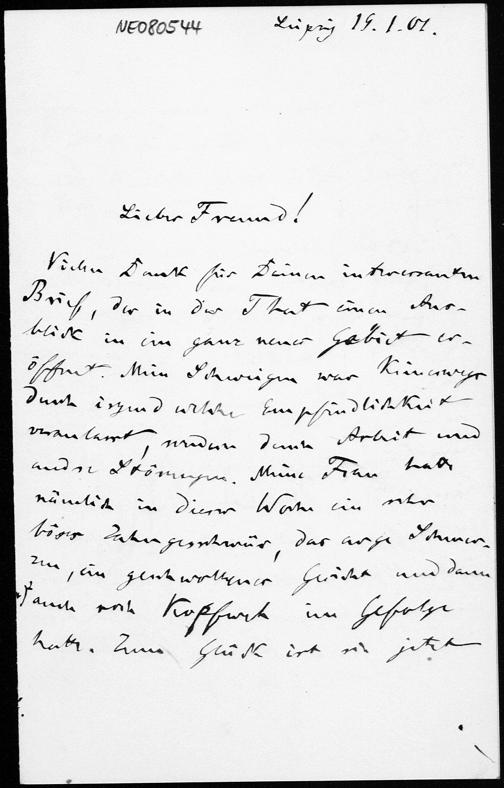 NE080544
Leipzig 19.1.01.
Lieber Freund!
Vielen Dank für Deinen interessanten
Brief, der in der That einen Aus-
blick in ein ganz neues Gebiet er-
öffnet. Mein Schweigen war keineswegs
durch irgend welche Empfindlichkeit
veranlasst, sondern durch Arbeit und
andre Störungen. Meine Frau hatte
nämlich in dieser Woche ein sehr
böses Zahngeschwür, das arge Schmer-
zen, ein geschwollenes Gesicht und dann
auch noch Kopfweh im Gefolge
hatte. Zum Glück ist sie jetzt